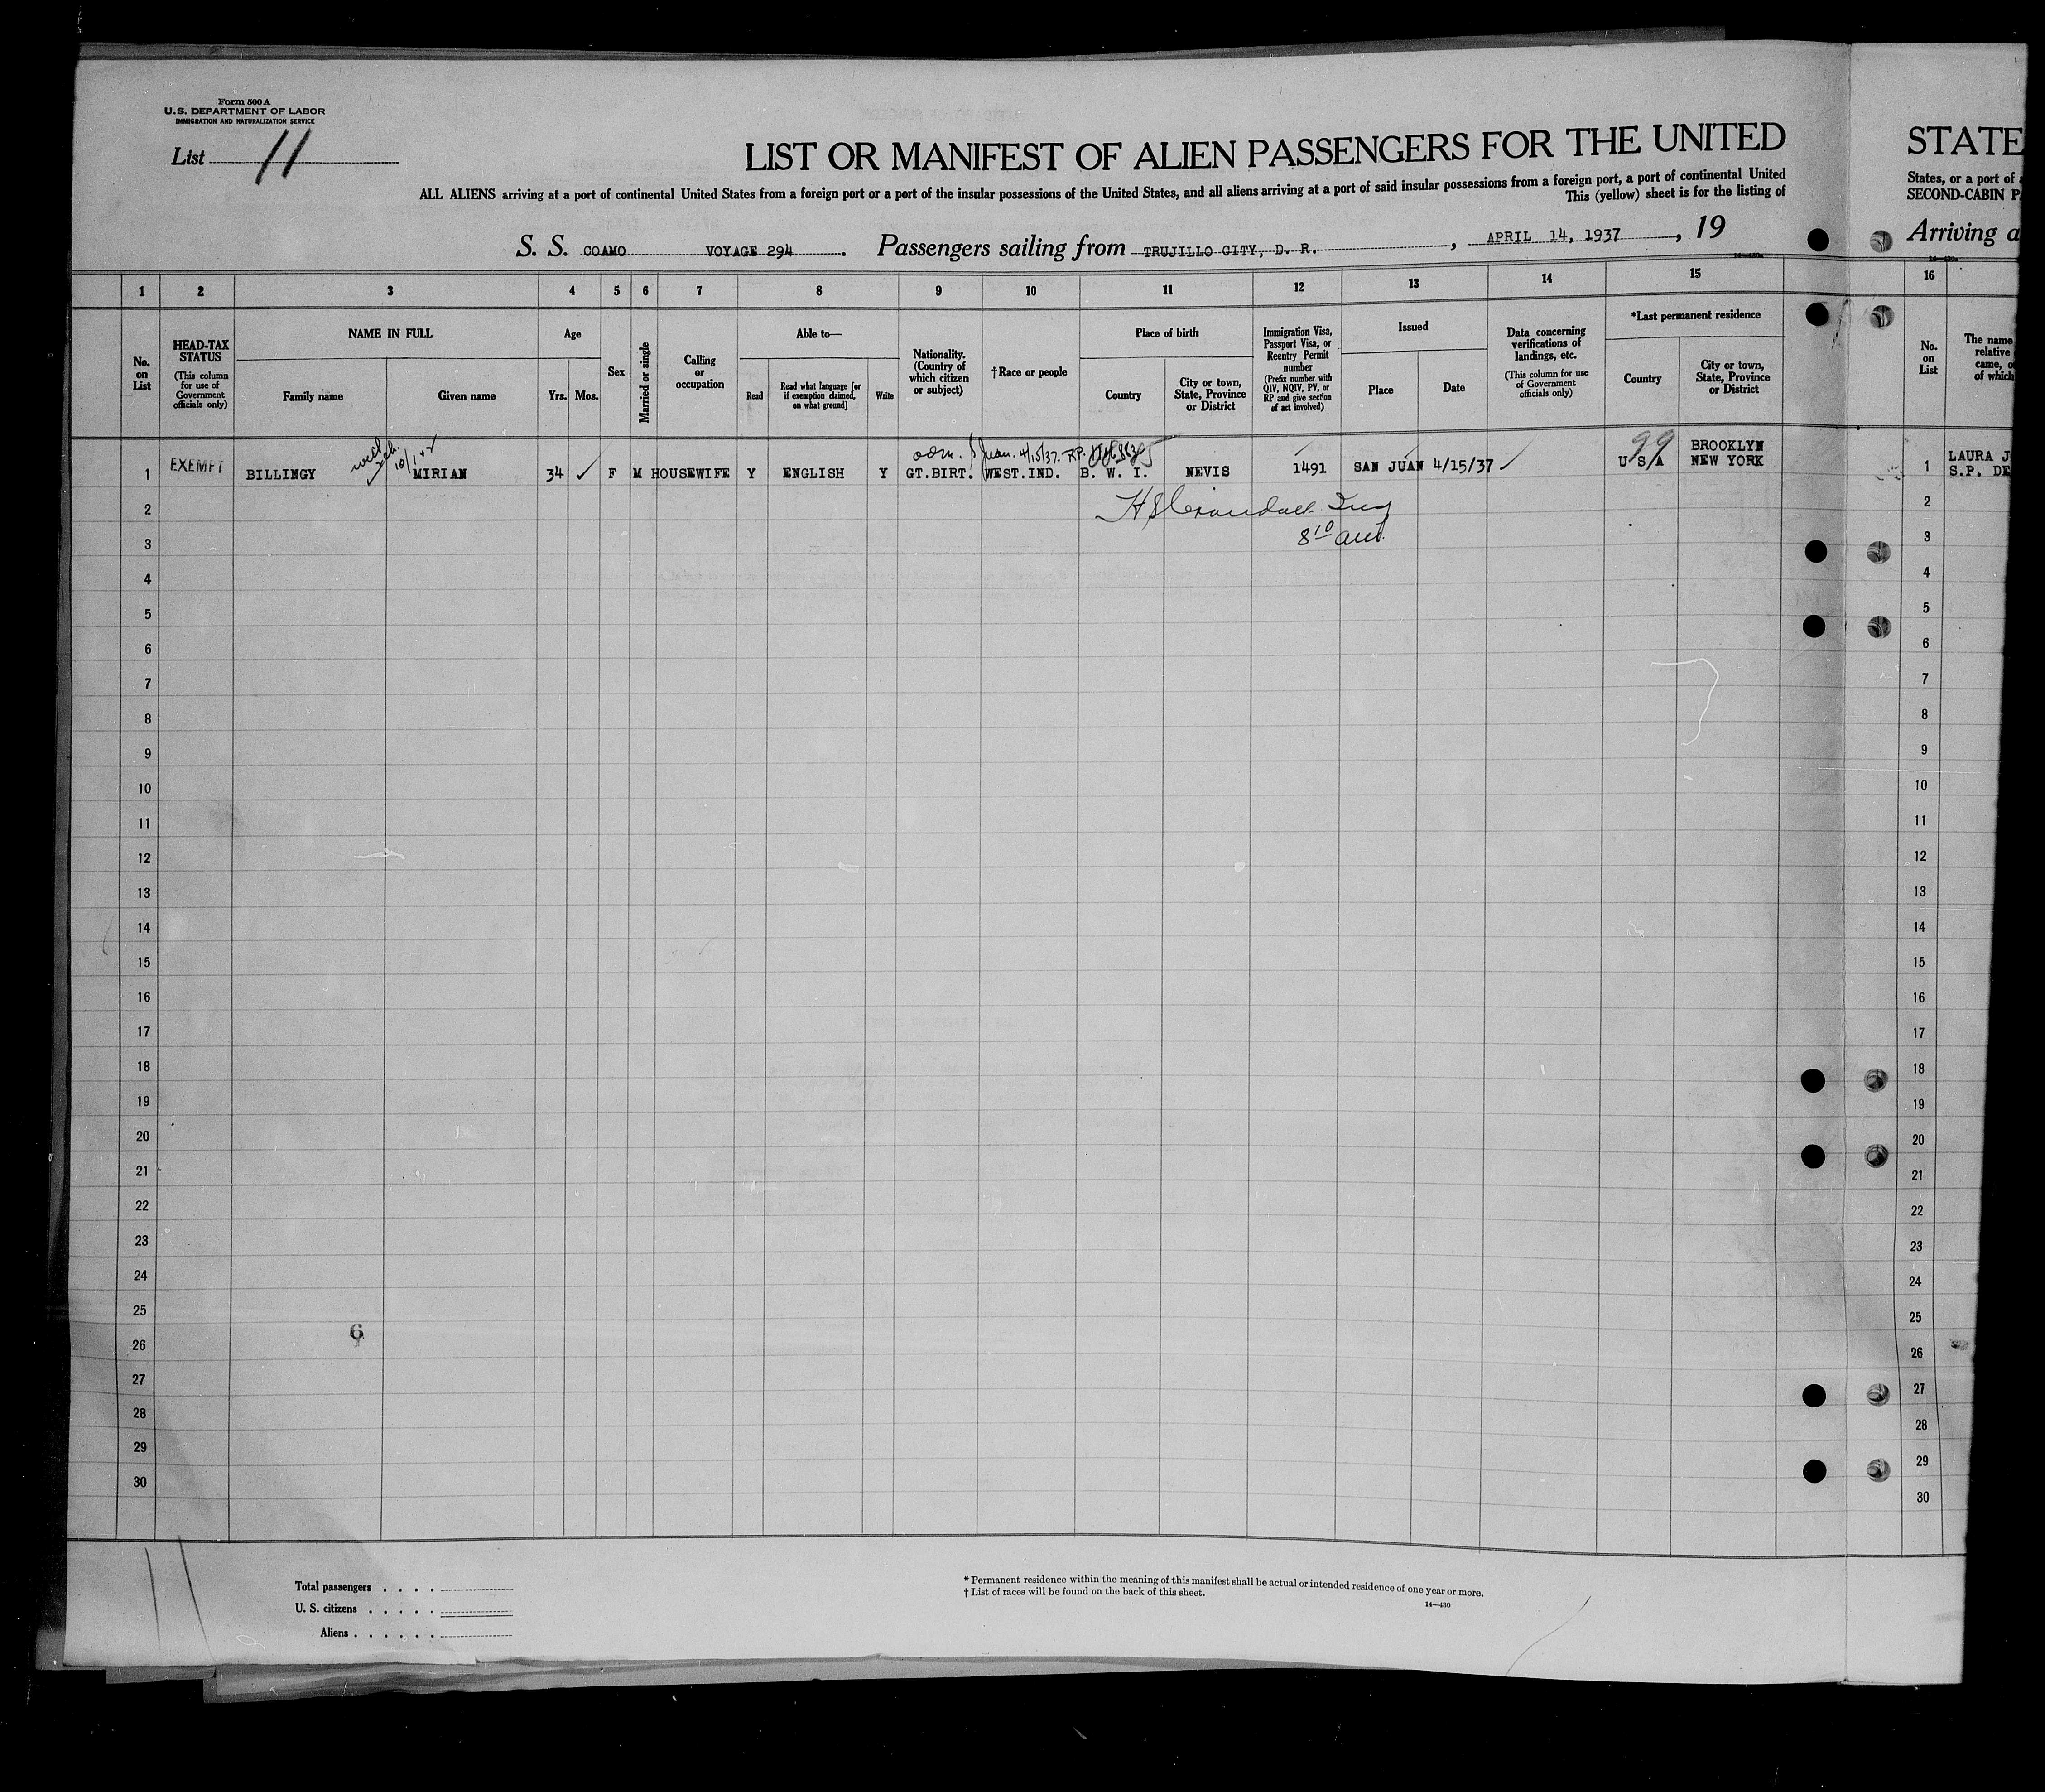 Form 500 A
U.S. DEPARTMENT OF LABOR
IMMIGRATION AND NATURALIZATION SERVICE
List 11
LIST OR MANIFEST OF ALIEN PASSENGERS FOR THE UNITED
STATE
ALL ALIENS arriving at a port of continental United States from a foreign port or a port of the insular possessions of the United States, and all aliens arriving at a port of said insular possessions from a foreign port, a port of continental United
States, or a port of
This (yellow) sheet is for the listing of
SECOND-CABIN P
S. S. COAMO VOYAGE 294 . Passengers sailing from TRUJILLO CITY, D. R. , APRIL 14, 1937 , 19
Arriving a
1 2 3 4 5 6 7 8 9 10 11 12 13 14 15
16
No. on List
HEAD-TAX STATUS (This column for use of Government officials only)
NAME IN FULL
Family name
Given name
Age
Yrs. Mos.
Sex
Married or single
Calling or occupation
Able to—
Read
Read what language [or if exemption claimed, on what ground]
Write
Nationality. (Country of which citizen or subject)
†Race or people
Place of birth
Country
City or town, State, Province or District
Immigration Visa, Passport Visa, or Reentry Permit number (Prefix number with QIV, NQIV, PV, or RP and give section of act involved)
Issued
Place
Date
Data concerning verifications of landings, etc. (This column for use of Government officials only)
*Last permanent residence
Country
City or town, State, Province or District
No. on List
The name
relative
came, o
of which
adm. S Juan. 4/15/37. RP.
10/1+2
99
1 EXEMPT BILLINGY MIRIAN 34 ✓ F M HOUSEWIFE Y ENGLISH Y GT.BIRT. WEST.IND. B. W. I. NEVIS 1491 SAN JUAN 4/15/37 ✓ U S A BROOKLYN NEW YORK
1 LAURA J
S.P. DE
2
3
4
5
6
7
8
9
10
11
12
13
14
15
16
17
18
19
20
21
22
23
24
25
26
27
28
29
30
2
3
4
5
6
7
8
9
10
11
12
13
14
15
16
17
18
19
20
21
22
23
24
25
26
27
28
29
30
6
Total passengers . . . .
U. S. citizens . . . . .
Aliens . . . . . .
* Permanent residence within the meaning of this manifest shall be actual or intended residence of one year or more.
† List of races will be found on the back of this sheet.
14—430